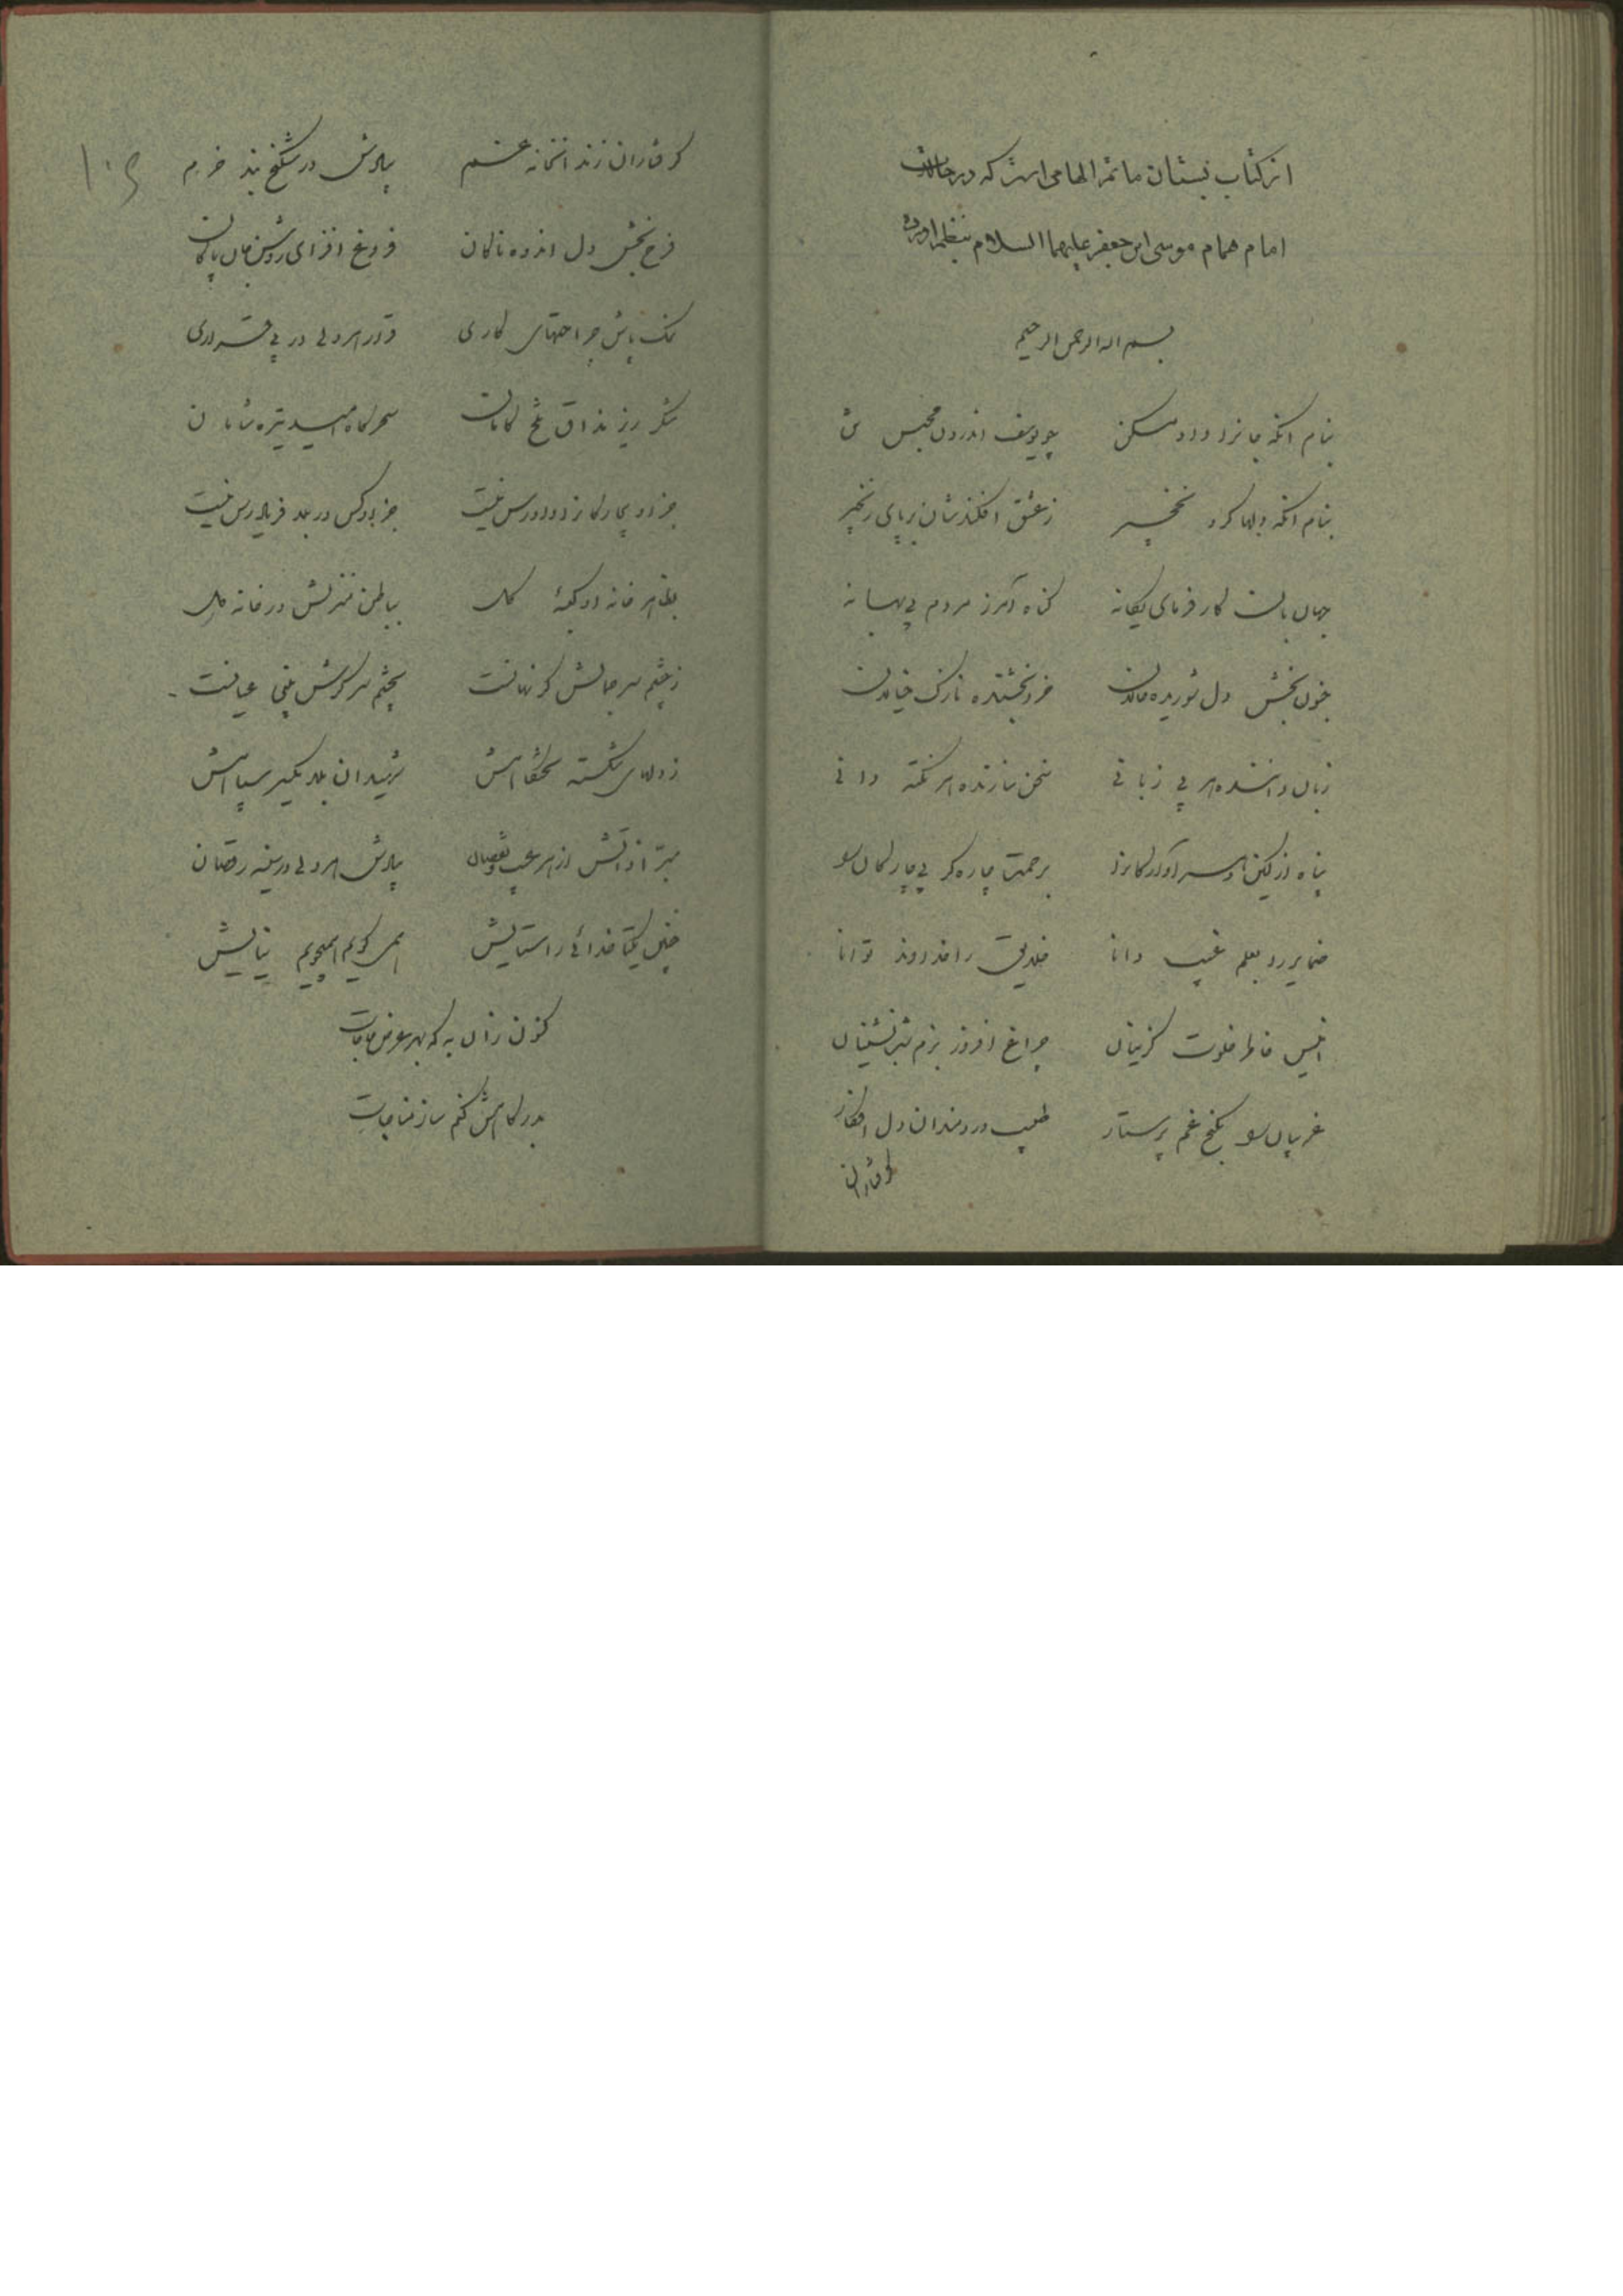 از کتاب نیستان ماتم الهامی است که در حالات
امام همام موسی ابن جعفر علیهما السلام بنظم آورده
بسم الله الرحمن الرحیم
بنام آنکه جانرا داد مسکن چو یوسف اندرون محبس تن
بنام آنکه دلها کرد نخجیر ز عشق افکندشان بر پای زنجیر
جهان بان کارفرمای یگانه گناه آمرز مردم بی بهانه
جنون بخش دل شوریده حالان خرد بخشنده نازک خیالان
زبان دانندهٔ هر بی زبانی سخن سازنده هر نکته دانی
پناه از لیکن آوارگانرا برحمت چاره گر بیچارگان را
ضمایر را بعلم غیب دانا خلایق را خداوند توانا
انیس خاطر خلوت گزینان چراغ افروز بزم شب نشینان
غریبان را بکنج غم پرستار طبیب دردمندان دل افکار
گرفتاران
گرفتاران زندانخانه غم بیادش در شکنج بند خرم
فرح بخش دل اندوه ناکان فروغ افزای روشن جان پاکان
نمک پاش جراحتهای کاری قرار هر دلی در بی قراری
شکر ریز مذاق تلخ کامان سحرگاه امید تیره شامان
جز او بیچارگانرا دادرس نیست جز او کس در بلا فریادرس نیست
بظاهر خانه او کعبهٔ گل بباطن منزلش در خانه دل
ز چشم سر جمالش گر نهانست بچشم سر گرش بینی عیانست
ز دلهای شکسته تختگاهش شهیدان بلا یکسر سپاهش
مبرا ذاتش از هر عیب و نقصان بیادش هر دلی در سینه رقصان
چنین یکتا خدائی را ستایش همی گویم همیجویم نیایش
کنون زان به که بهر عرض حاجات
بدرگاهش کنم ساز مناجات